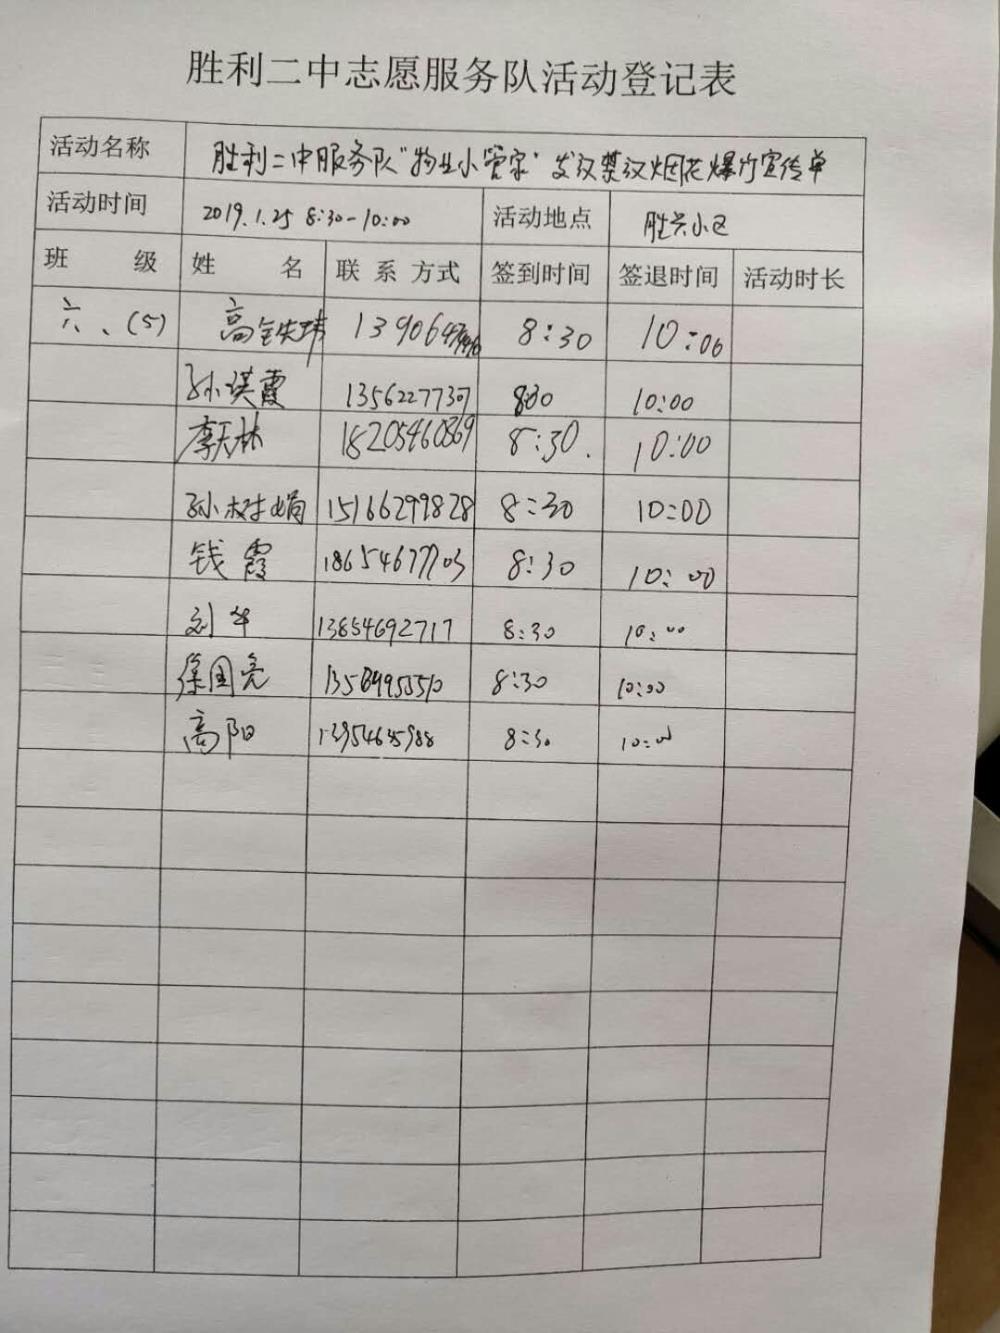 胜利二中志愿服务队活动登记表
活动名称 胜利二中服务队"物业小管家"发放禁放烟花爆竹宣传单
活动时间 2019.1.25 8:30-10:00 活动地点 胜兴小区
班 级 姓 名 联系方式 签到时间 签退时间 活动时长
六、(5) 高 8:30 10:00
孙洪霞 13562277307 800 10:00
李天林 18205460869 8:30. 10:00
孙树娟 15166299828 8:30 10:00
钱霞 18654677703 8:30 10:00
刘华 13854692717 8:30 10:00
徐国亮 8:30 10:00
高阳 13954635988 8:30 10:00